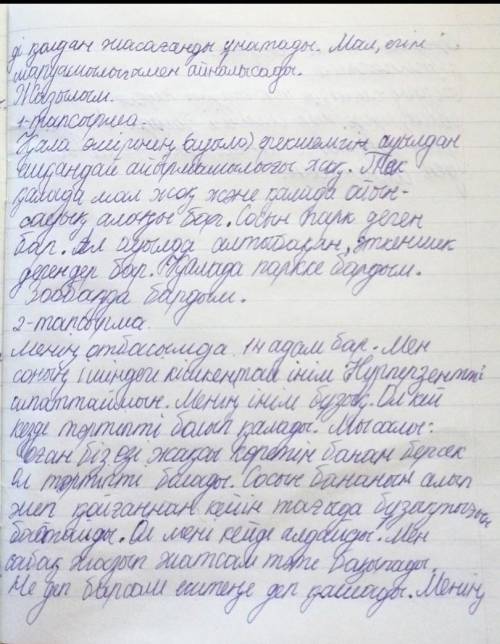 ді қолдан жасағанды ұнатады. Мал, егін
шаруашылығымен айналысады.
Жазылым.
1-тапсырма.
Қала өмірінің (ауыл) ерекшелігін ауылдан
ешқандай айырмашылығы жоқ. Тек
қалада мал жоқ және қалада ойын-
сауық алаңы бар. Сосын парк деген
бар. Ал ауылда алтыбақан, әткеншек
дегендер бар. Қалада паркке бардым.
Зообаққа бардым.
2-тапсырма.
Менің отбасымда 14 адам бар. Мен
соның ішіндегі кішкентай інім Нұрперзентті
сипаттаймын. Менің інім бұзық. Ол кей
кезде тәртіпті болып қалады. Мысалы:
Оған біз өзі жақсы көретін банан берсек
Ол тәртіпті болады. Сосын бананын алып
жеп қойғаннан кейін тағыда бұзақылығын
бастайды. Ол мені кейде алдайды. Мен
сабақ жазып жатсам мені шақырады.
Не деп барсам ештеңе деп қашады. Менің